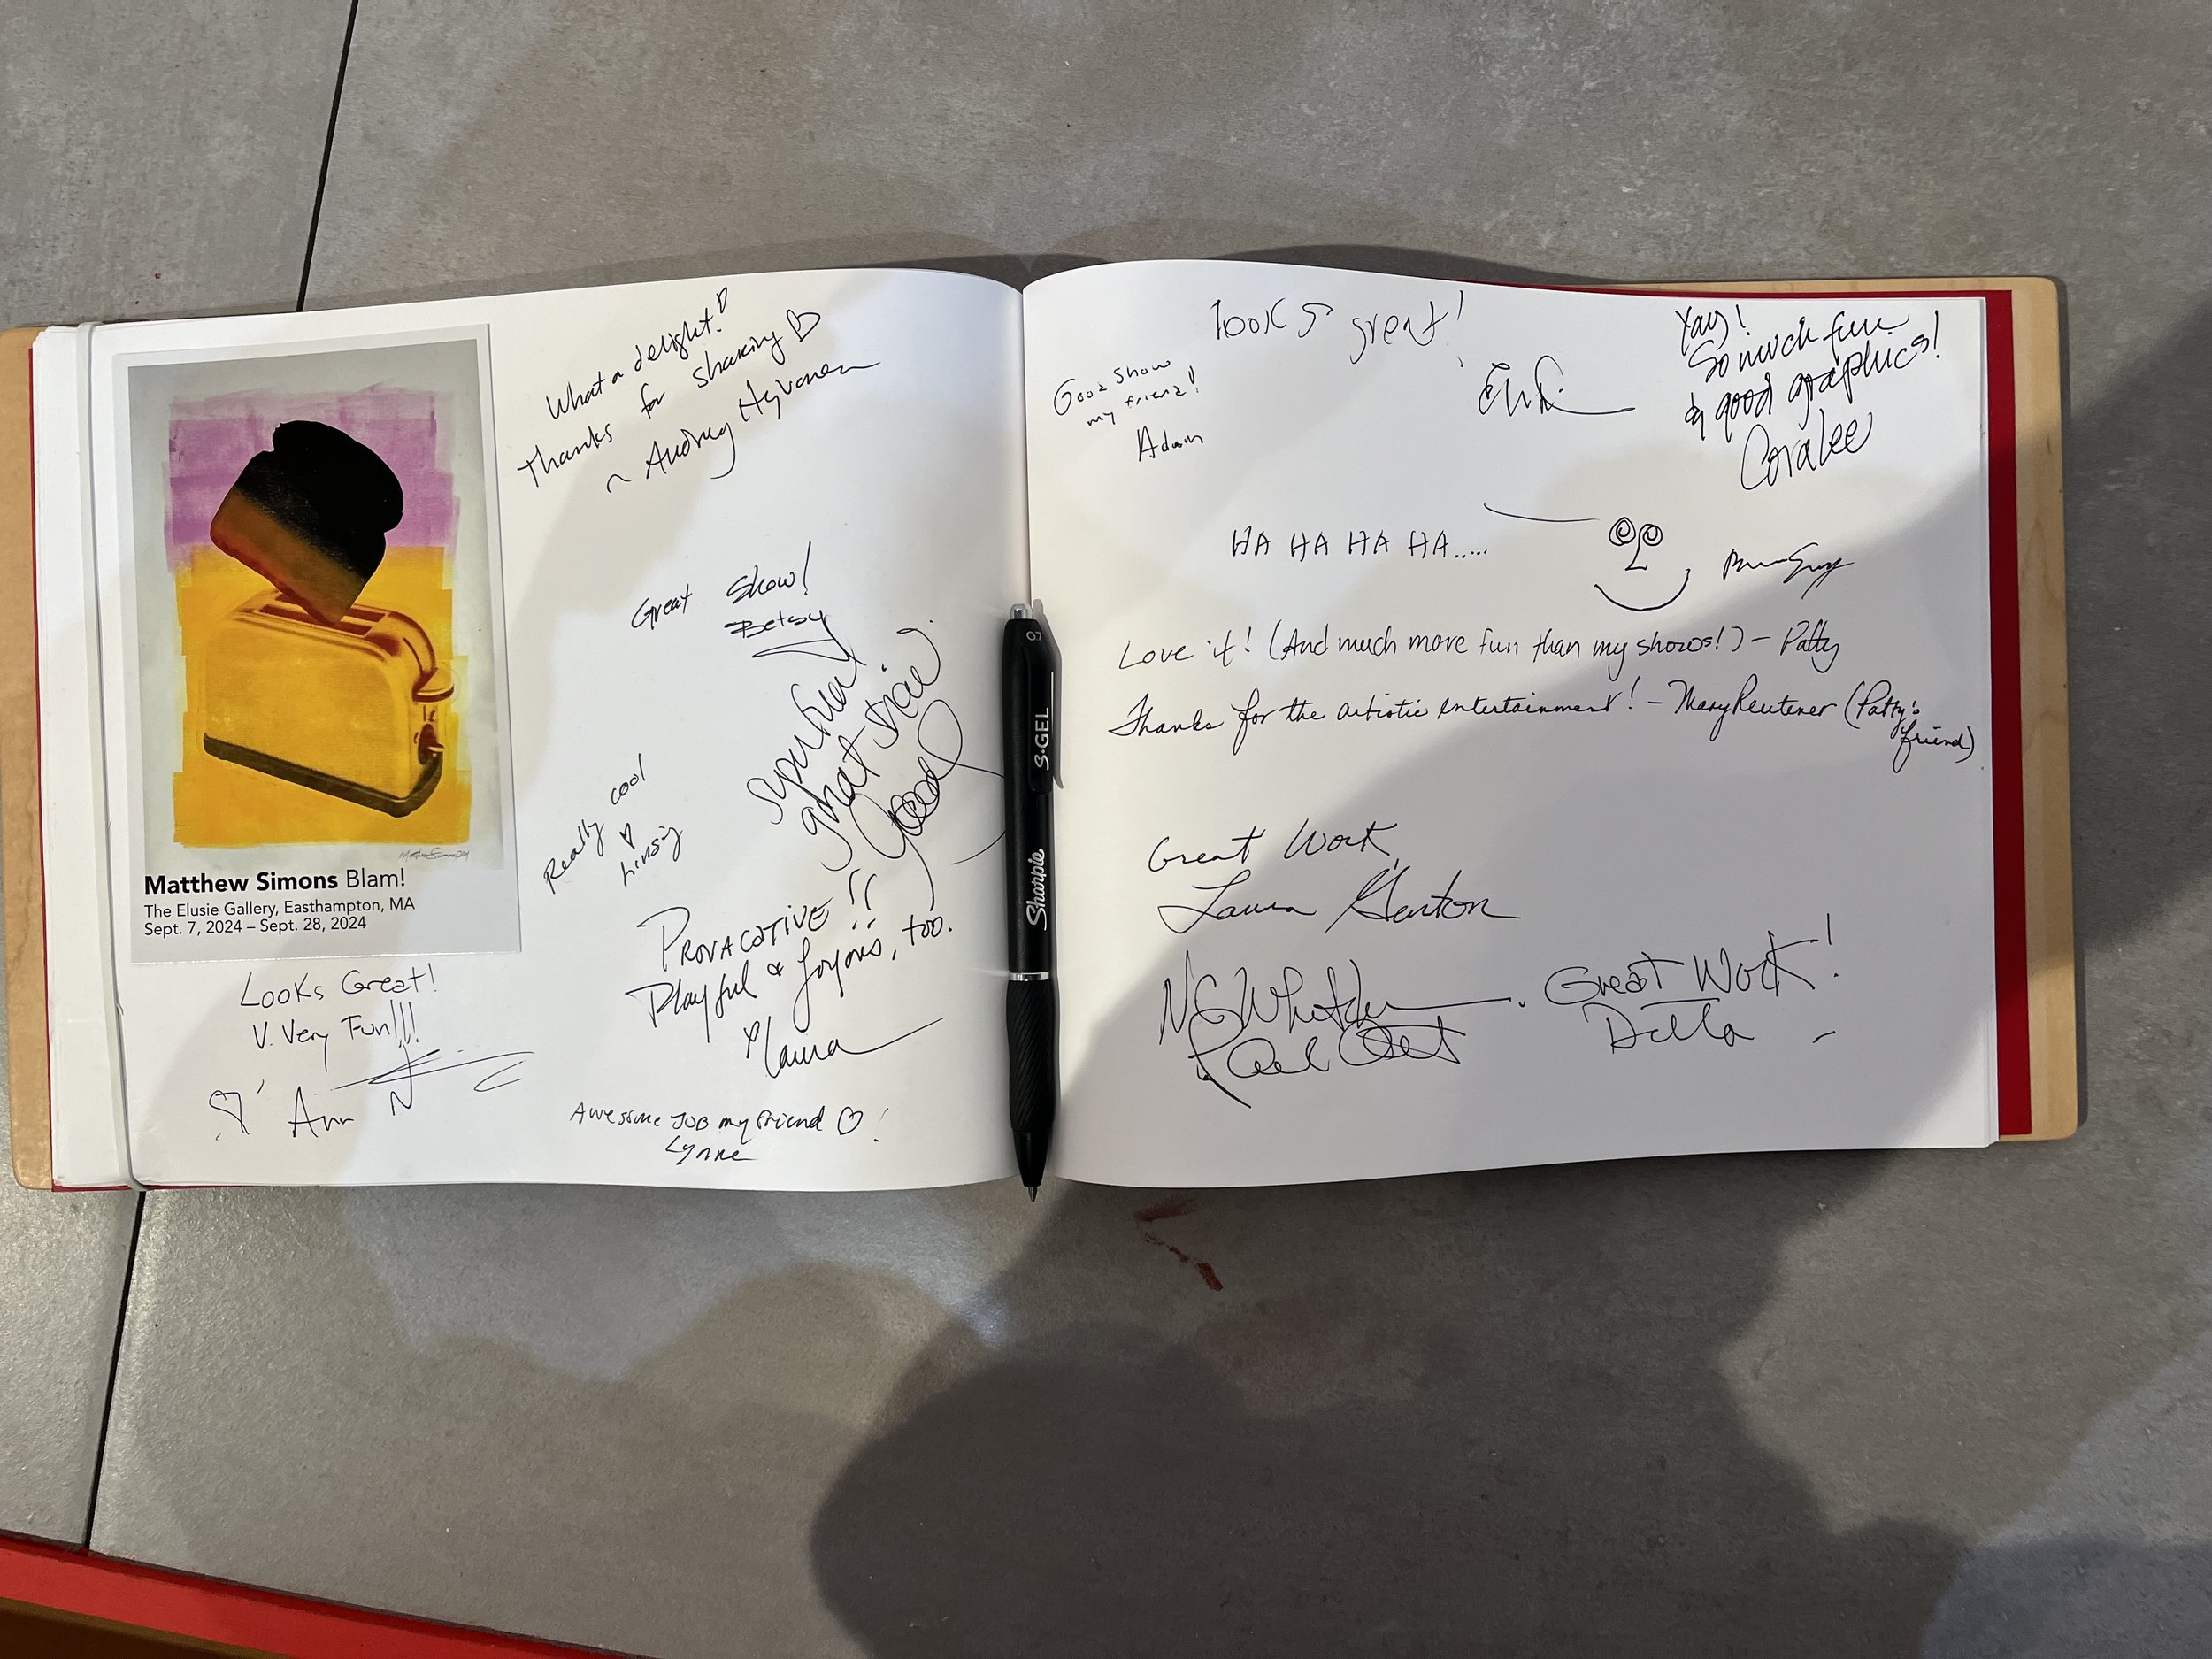 What a delight!
Thanks for sharing
~ Audrey Hyvonen
Great Show!
Betsy
great
Really cool
Linsey
PROVACATIVE !!
Playful & Joyous, too.
Laura
Matthew Simons Blam!
The Elusie Gallery, Easthampton, MA
Sept. 7, 2024 – Sept. 28, 2024
Looks Great!
V. Very Fun!!!
Ann
Awesome JOB my friend !
Lynne
looks great!
Good Show
my friend!
Adam
Yay!
So much fun
& good graphics!
Coralee
HA HA HA HA.....
Love it! (And much more fun than my shows!) – Patty
Thanks for the artistic entertainment! – Mary Reutener (Patty's
friend)
Great Work,
Laura
Great Work!
S·GEL
0.7
Sharpie